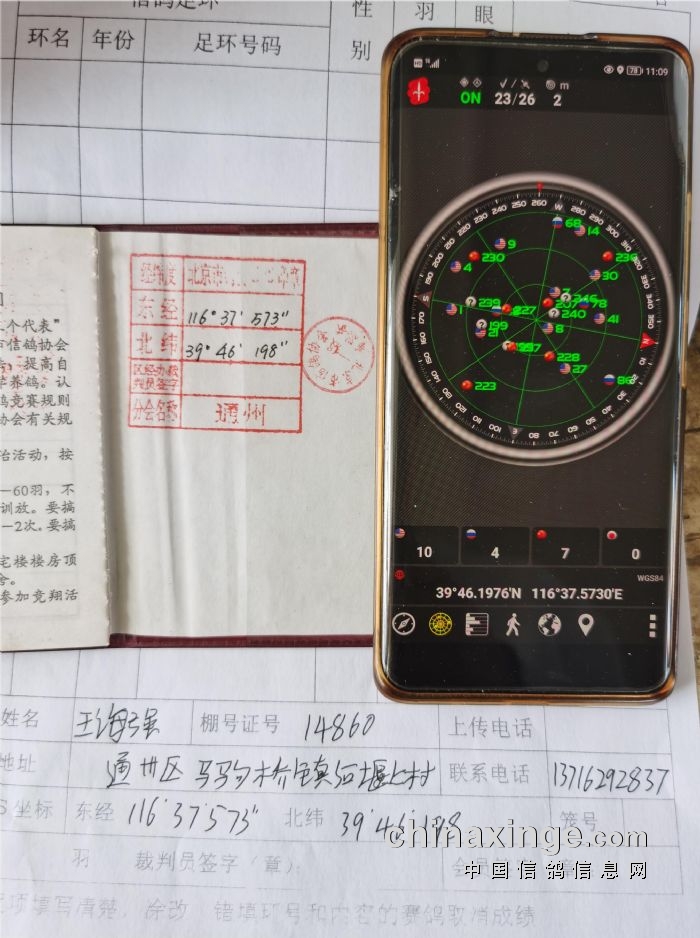 信鸽足环
性
羽
眼
环名 年份 足环号码
别
个代表”
市信鸽协会
提高自
养鸽。认
鸽竞赛规则
协会有关规
治活动，按
—60羽，不
训放。要搞
—2次。要搞
宅楼楼房顶
舍。
参加竞翔活
东经 116°37′573″
北纬 39°46′198″
区经办裁
判员签字
分会名称 通州
78 11:09
m
ON 23/26 2
10 4 7 0
WGS84
39°46.1976'N 116°37.5730'E
姓名 王海强 棚号证号 14860 上传电话
地址 通州区 联系电话 13716292837
S坐标 东经 116°37′573″ 北纬 39°46′198 笼号
chinaxinge.com
羽 裁判员签字（章） 会员签字
中国信鸽信息网
项填写清楚，涂改、错填环号和内容的赛鸽取消成绩